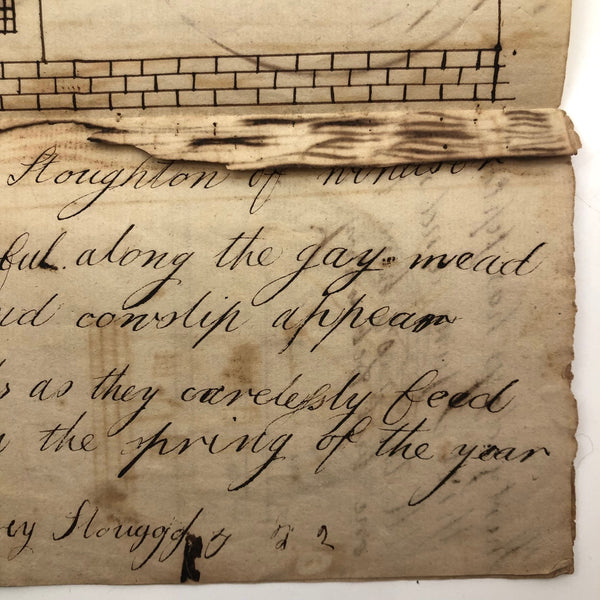 Stoughton of Windsor
ful along the gay mead
cowslip appear
as they carelessly feed
the spring of the year